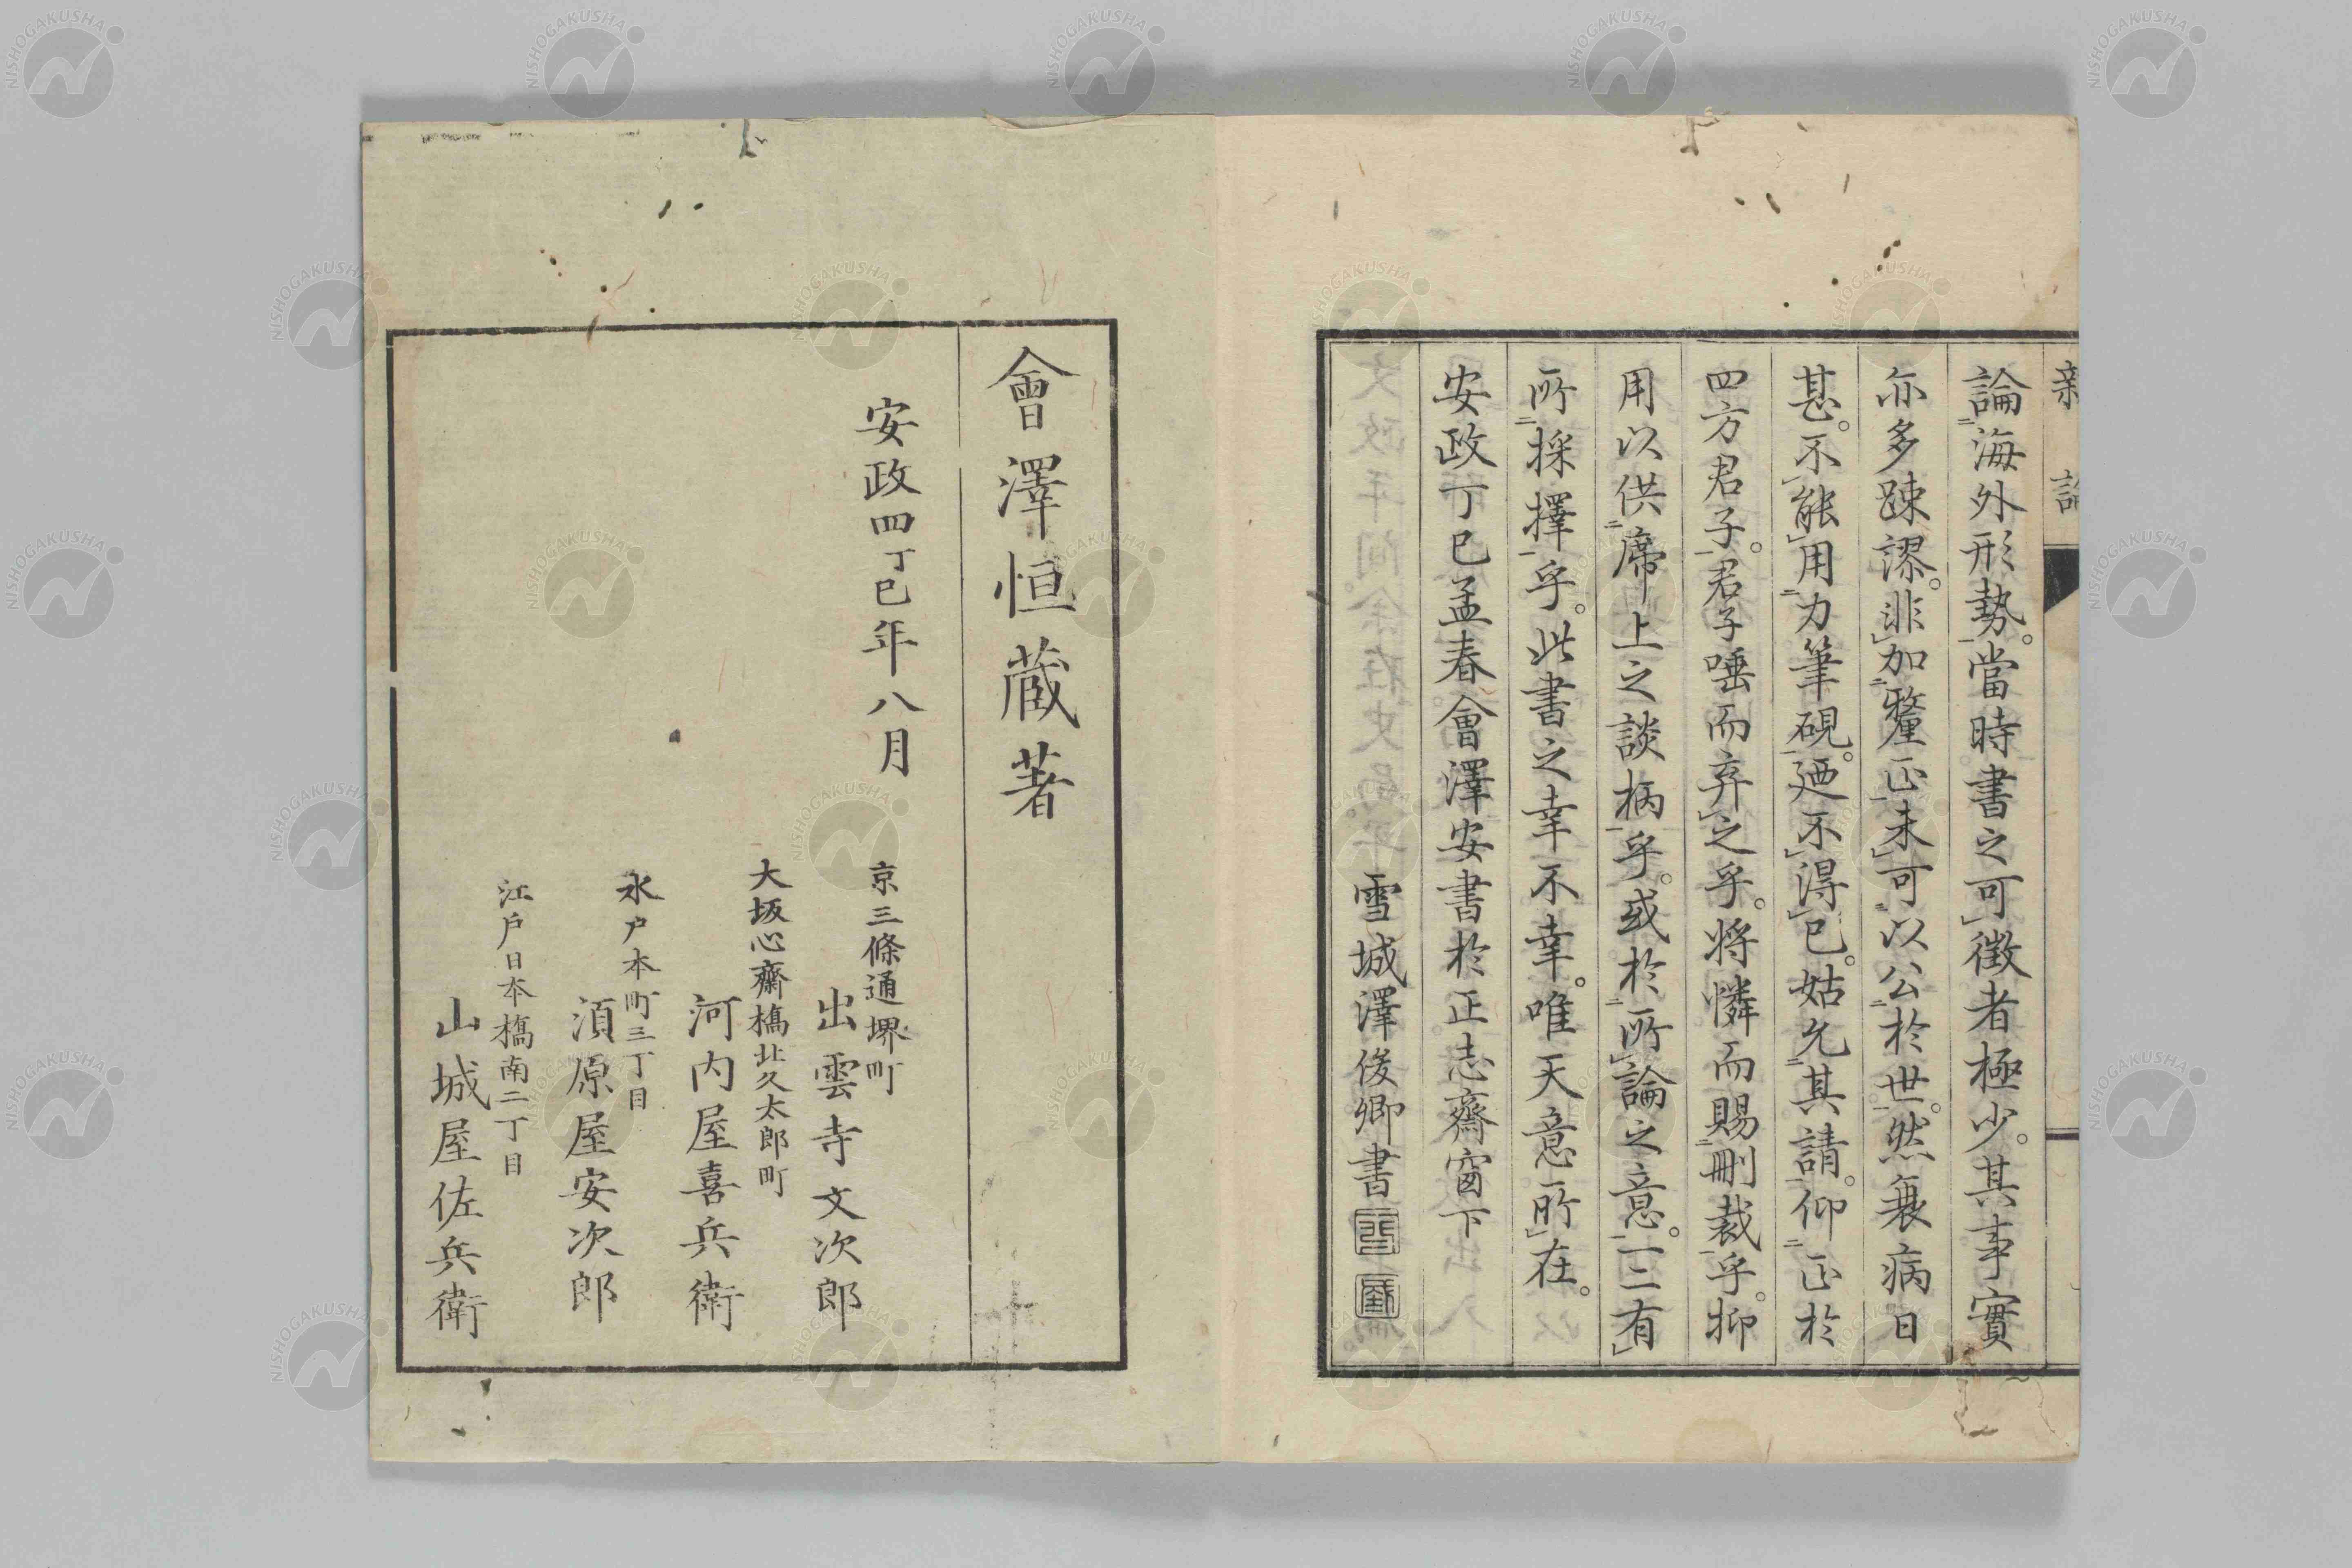 新論
論海外形勢。當時書之可徵者極少。其事實
亦多踈謬。非加釐正未可以公於世。然衰病日
甚。不能用力筆硯。廼不得已。姑允其請。仰正於
四方君子。君子唾而弃之乎。將憐而賜刪裁乎。抑
用以供席上之談柄乎。或於所論之意。一二有
所採擇乎。此書之幸不幸。唯天意所在。
安政丁巳孟春會澤安書於正志齋窗下
雪城澤俊卿書
會澤恒蔵著
安政四丁巳年八月
京三條通堺町
出雲寺文次郎
大坂心齋橋北久太郎町
河内屋喜兵衛
水戸本町三丁目
須原屋安次郎
江戸日本橋南二丁目
山城屋佐兵衛
NISHOGAKUSHA